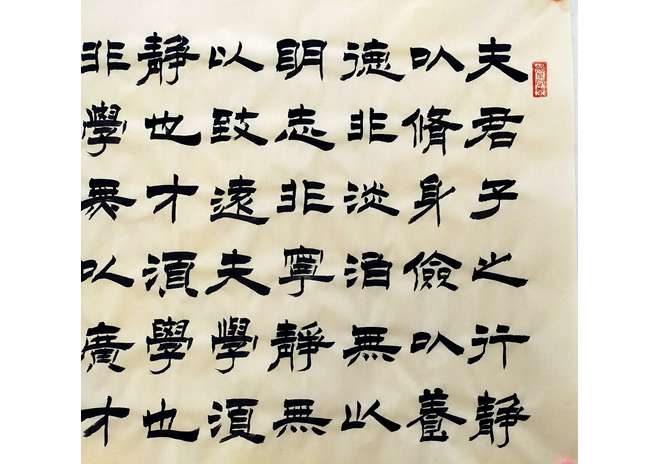 夫君子之行静
以脩身儉以養
德非淡泊無以
明志非寧静無
以致遠夫學須
静也才須學也
非學無以廣才